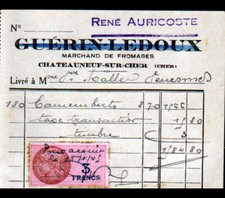 RENÉ AURICOSTE
GUÉRIN-LEDOUX
MARCHAND DE FROMAGES
CHATEAUNEUF-SUR-CHER (CHER)
Livré à M
180 Camemberts 8 70 1566
taxe transaction 1 80
timbre 3
3
FRANCS